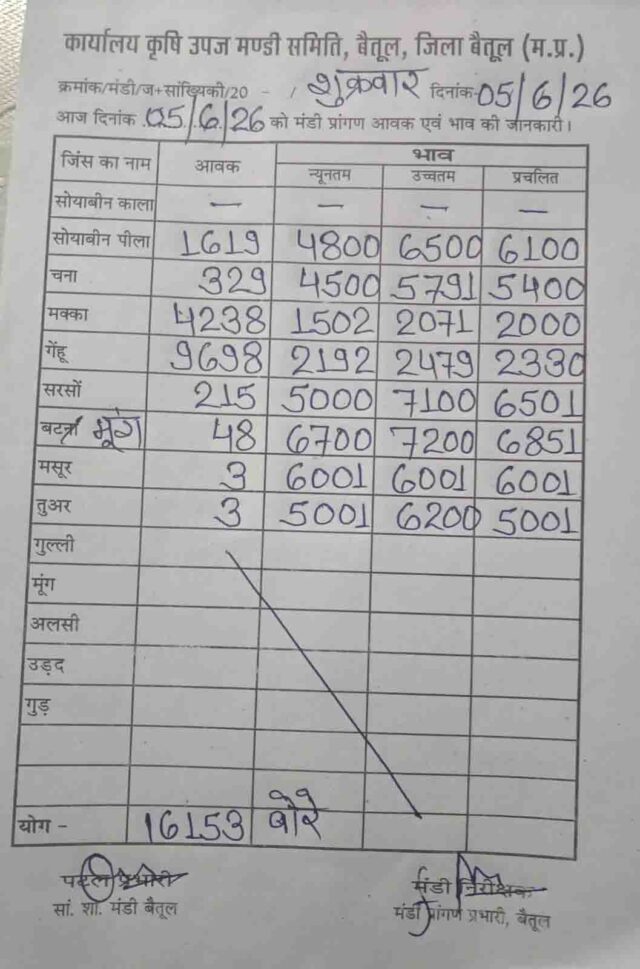 कार्यालय कृषि उपज मण्डी समिति, बैतूल, जिला बैतूल (म.प्र.)
क्रमांक/मंडी/ज+सांख्यिकी/20 - / शुक्रवार दिनांक 05/6/26
आज दिनांक 05/6/26 को मंडी प्रांगण आवक एवं भाव की जानकारी।
जिंस का नाम आवक भाव
न्यूनतम उच्चतम प्रचलित
सोयाबीन काला — — — —
सोयाबीन पीला 1619 4800 6500 6100
चना 329 4500 5791 5400
मक्का 4238 1502 2071 2000
गेंहू 9698 2192 2479 2330
सरसों 215 5000 7100 6501
बटरा मूंग 48 6700 7200 6851
मसूर 3 6001 6001 6001
तुअर 3 5001 6200 5001
गुल्ली
मूंग
अलसी
उड़द
गुड़
योग - 16153 बोरे
प्रभारी मंडी निरीक्षक
सां. शा. मंडी बैतूल मंडी प्रांगण प्रभारी, बैतूल